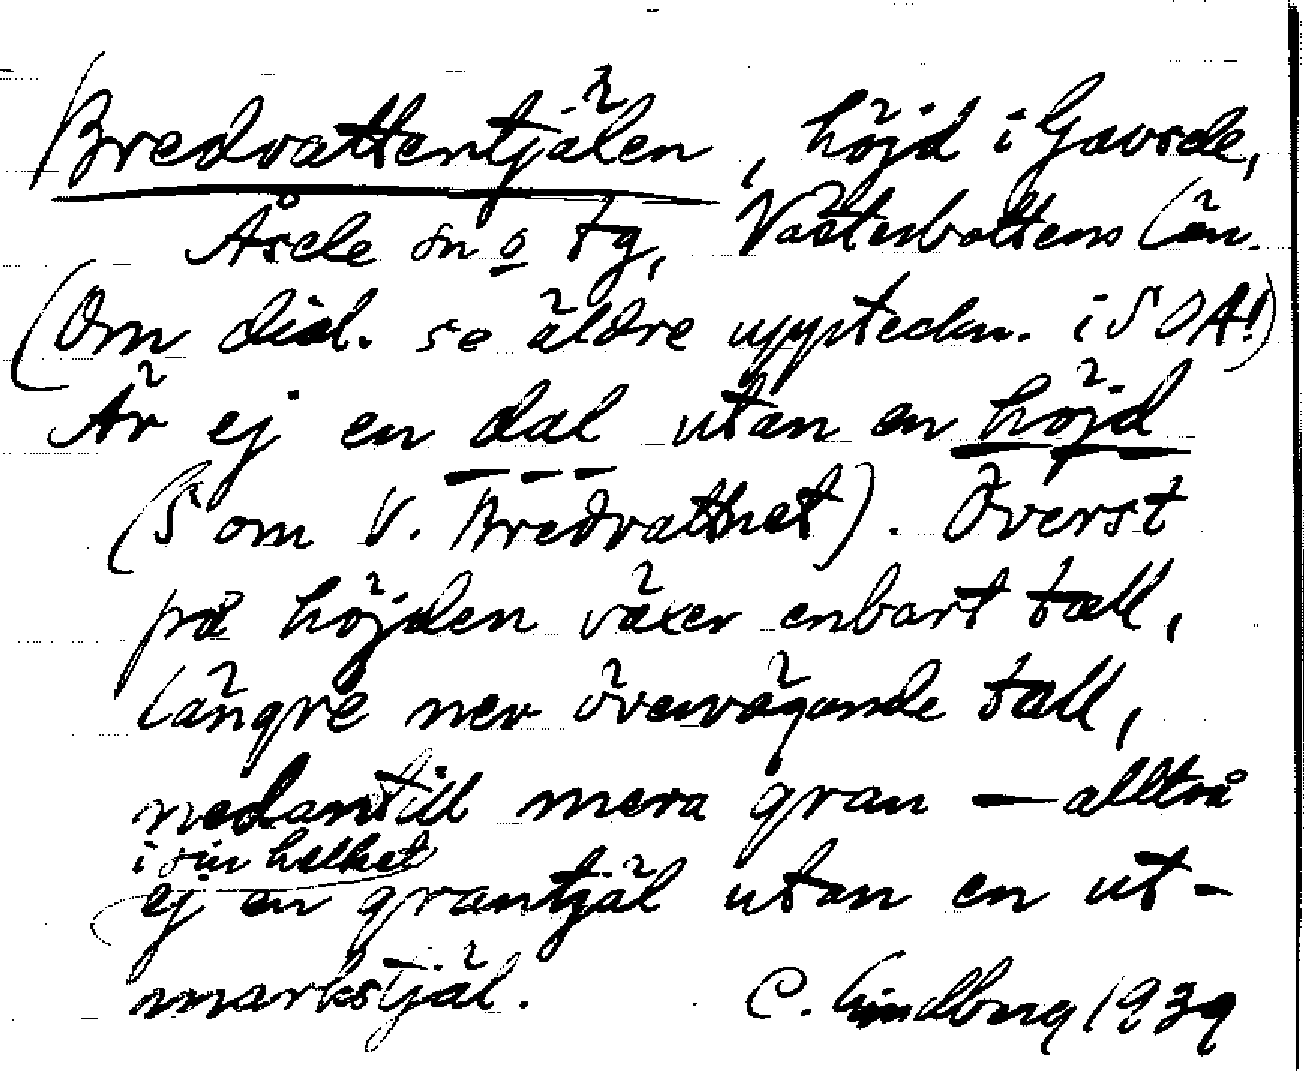 Bredvattentjälen, höjd i Gavsele,
Åsele sn o tg, Västerbottens län.
(Om dial. se äldre uppteckn. i SOA!)
Är ej en dal utan en höjd
(S om V. Bredvattnet). Överst
på höjden växer enbart tall,
längre ner övervägande tall,
nedantill mera gran — alltså
i sin helhet
ej en grantjäl utan en ut-
markstjäl. C. Lindberg 1939